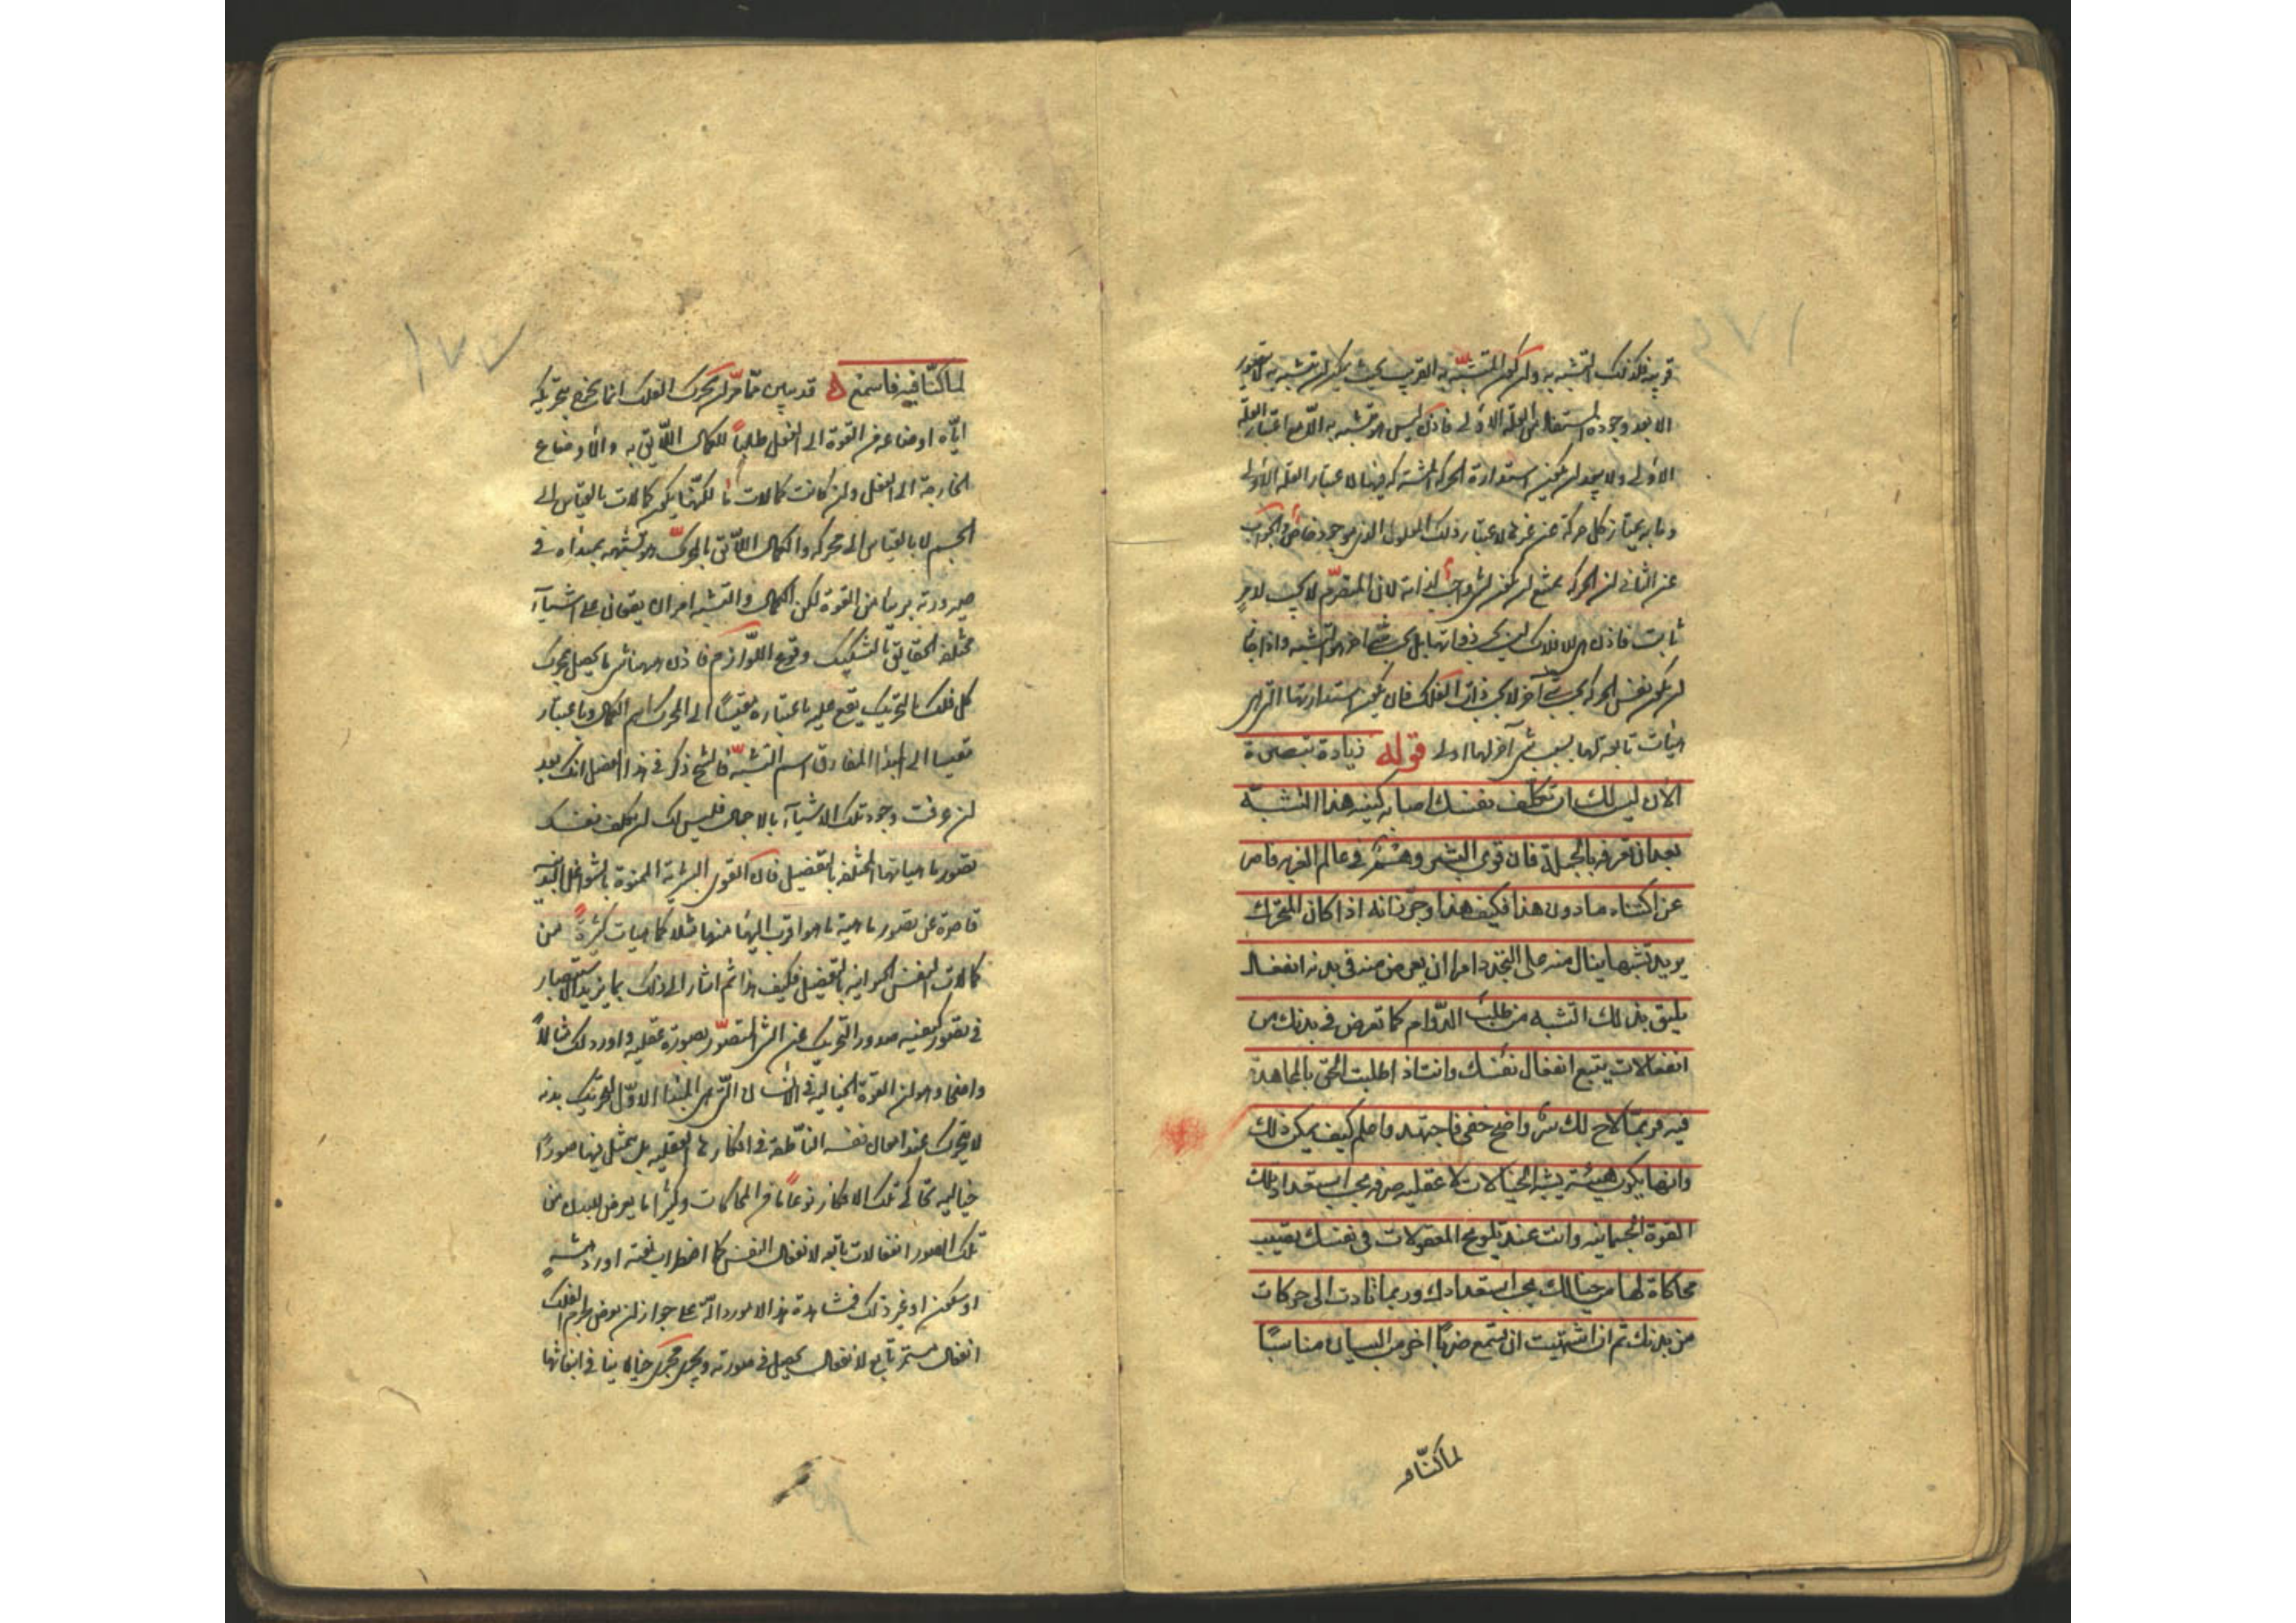 قريبة فكذلك التشبه به ولن كون المتشبه به القريب بحيث يمكن لن يتشبه به لا يتصور
الا بعد وجوده المستفاد من العلة الاولى فاذن ليس هو متشبه به الا مع اعتبار العلة
الاولى ولا يبعد لن يكون استدارة الحركة المشتركة فيها لاعتبار العلة الاولى
وما به يمتاز كل حركة عن غيرها لاعتبار ذلك المعلول الذى هو موجود خاص والجواب
عن الثانى لن الحركة يمتنع لن يكون لشى واجبا لذاته لان المتصرم لا يجب لامر
ثابت فاذن هى للافلاك ليس بحسب ذواتها بل بحسب شى اخر هو التشبه واذا جاز
لن يكون نفس الحركة بحسب شى آخر لا بحسب ذات الفلك فان يكون استدارتها التى هى
هيئات تابعة لها بسبب شى آخر لها اولى قوله زيادة تبصرة
الان ليس لك ان تكلف نفسك اصابة كنه هذا التشبه
بعد ان تعرفه بالجملة فان قوى البشر وهمم فى عالم الغربة قاصرة
عن اكتناه ما دون هذا فكيف هذا وجوز انه اذا كان المتحرك
يريد تشبها ينال منه على التجدد امرا ان يعرض منه فى بدنه انفعال
يليق بذلك التشبه من طلب الدوام كما تعرض فى بدنك من
انفعالات يتبع انفعال نفسك وانت اذا طلبت الحق بالمجاهدة
فيه فربما لاح لك سر واضح خفى فاجتهد واعلم كيف يمكن ذلك
وانها يكون هيئة يشبه الخيالات لا عقلية صرفة بحسب استعداد تلك
القوة الجسمانية وانت عند تلويح المعقولات فى نفسك تصيب
محاكاة لها من خيالك بحسب استعدادك وربما تادت الى حركات
من بدنك ثم ان اشتهيت ان تسمع ضربا اخر من البيان مناسبا
لما كنا فيه
لما كنا فيه فاسمع قد تبين مما مر لن محرك الفلك انما يخرج بتحريكه
اياه اوضاعه من القوة الى الفعل طلبا للكمال اللائق به والاوضاع
الخارجة الى الفعل ولن كانت كمالات ما لكنها يكون كمالات بالقياس الى
الجسم لا بالقياس الى محركه والكمال اللائق بالمحرك هو تشبهه بمبداه فى
صيرورته بريئا من القوة لكن الكمال والتشبه امران يقعان على اشياء
مختلفة الحقائق بالتشكيك وقوع اللوازم فاذن ههنا شى ما يحصل لمحرك
كل فلك بالتحريك يقع عليه باعتباره مقيسا الى المحرك اسم الكمال وباعتباره
مقيسا الى المبدا المفارق اسم التشبه فالشيخ ذكر فى هذا الفصل انك بعد
لن عرفت وجود تلك الاشياء بالاجمال فليس لك لن تكلف نفسك
تصور ماهياتها المختلفة بالتفصيل فان القوى البشرية الممنوة بالشواغل البدنية
قاصرة عن تصور ماهية ما هو اقرب اليها منها مثلا كماهيات كثيرة من
كمالات النفس الحيوانية بالتفصيل فكيف هذا ثم اشار الى ذلك بما يزيد الاستبصار
فى تصور كيفية صدور التحريك عن الشى المتصور بصورة عقلية واورد لك مثالا
واضحا وهو لن القوة الخيالية فى الانسان التى هى المبدا الاول لتحريك بدنه
لا يتحرك عند اعمال نفسه الناطقة فى افكارها العقلية بل يتمثل فيها صورا
خيالية تحاكى تلك الافكار نوعا ما من المحاكات وكثيرا ما يعرض للبدن من
تلك الصور انفعالات تابعة لانفعال النفس كما اضطراب يعتريه او دهشة
او سكون او غير ذلك فمشاهدة هذه الامور دالة على جواز لن يعرض لجرم الفلك
انفعال مستمر تابع لانفعال يحصل فى صورته ويجرى مجرى خيالاتنا فى انبعاثها